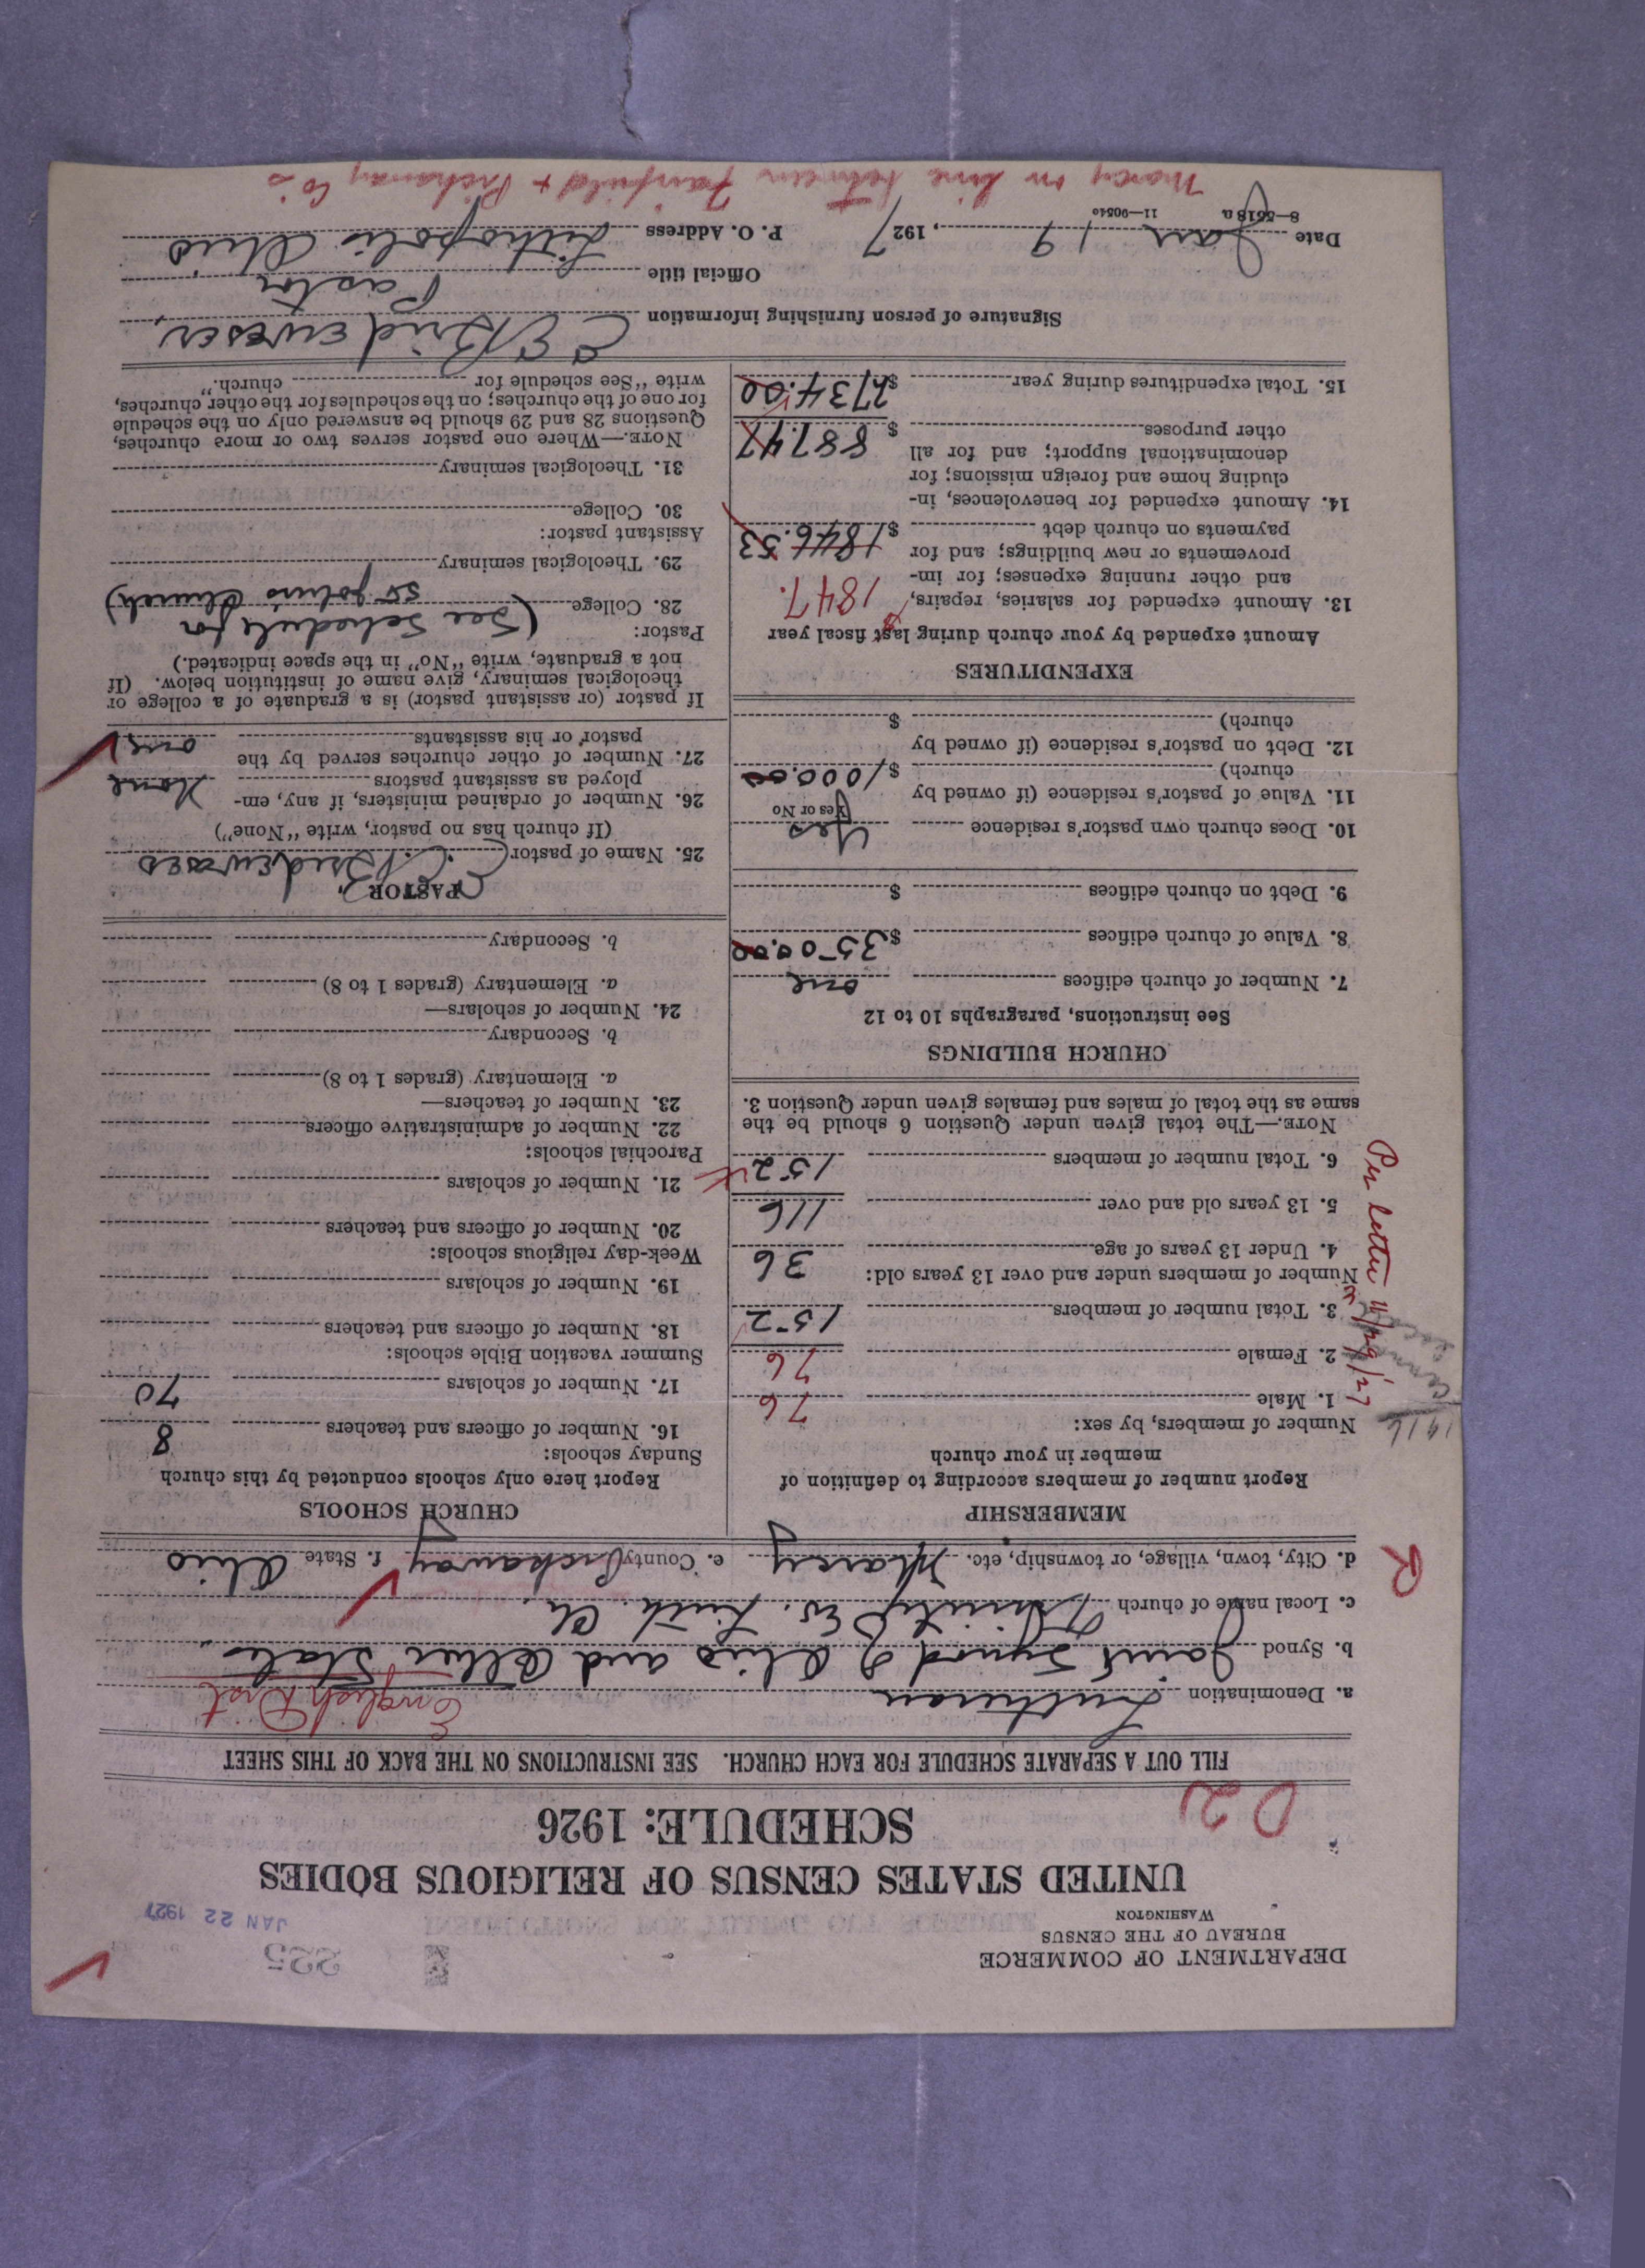 DEPARTMENT OF COMMERCE
BUREAU OF THE CENSUS
WASHINGTON
225
JAN 22 1927
UNITED STATES CENSUS OF RELIGIOUS BODIES
SCHEDULE: 1926
FILL OUT A SEPARATE SCHEDULE FOR EACH CHURCH. SEE INSTRUCTIONS ON THE BACK OF THIS SHEET
English Dist
a. Denomination Lutheran
b. Synod Joint Synod of Ohio and Other States
c. Local name of church Trinity Ev. Luth. Ch.
R
d. City, town, village, or township, etc. Marcy e. County Pickaway f. State Ohio
MEMBERSHIP
Report number of members according to definition of
member in your church
Number of members, by sex:
1. Male 76
2. Female 76
3. Total number of members 152
Number of members under and over 13 years old:
4. Under 13 years of age 36
5. 13 years old and over 116
6. Total number of members 152
NOTE.—The total given under Question 6 should be the
same as the total of males and females given under Question 3.
1916
Per letter 11/29/27
CHURCH BUILDINGS
See instructions, paragraphs 10 to 12
7. Number of church edifices one
8. Value of church edifices $3500.00
9. Debt on church edifices $
10. Does church own pastor's residence Yes
Yes or No
11. Value of pastor's residence (if owned by
church) $1000.00
12. Debt on pastor's residence (if owned by
church) $
EXPENDITURES
Amount expended by your church during last fiscal year
13. Amount expended for salaries, repairs, 1847.
and other running expenses; for im-
provements or new buildings; and for
payments on church debt $1846.53
14. Amount expended for benevolences, in-
cluding home and foreign missions; for
denominational support; and for all
other purposes $887.47
15. Total expenditures during year $2734.00
CHURCH SCHOOLS
Report here only schools conducted by this church
Sunday schools:
16. Number of officers and teachers 8
17. Number of scholars 70
Summer vacation Bible schools:
18. Number of officers and teachers
19. Number of scholars
Week-day religious schools:
20. Number of officers and teachers
21. Number of scholars
Parochial schools:
22. Number of administrative officers
23. Number of teachers—
a. Elementary (grades 1 to 8)
b. Secondary
24. Number of scholars—
a. Elementary (grades 1 to 8)
b. Secondary
PASTOR
25. Name of pastor
(If church has no pastor, write "None")
26. Number of ordained ministers, if any, em-
ployed as assistant pastors None
27. Number of other churches served by the
pastor or his assistants one
If pastor (or assistant pastor) is a graduate of a college or
theological seminary, give name of institution below. (If
not a graduate, write "No" in the space indicated.)
Pastor: (See Schedule for
28. College St John's Church)
29. Theological seminary
Assistant pastor:
30. College
31. Theological seminary
NOTE.—Where one pastor serves two or more churches,
Questions 28 and 29 should be answered only on the schedule
for one of the churches; on the schedules for the other churches,
write "See schedule for church."
Signature of person furnishing information
Official title Pastor
Date Jan 19, 1927 P. O. Address Lithopolis Ohio
8—5518a 11—90540
Marcy on line between Fairfield + Pickaway Co's